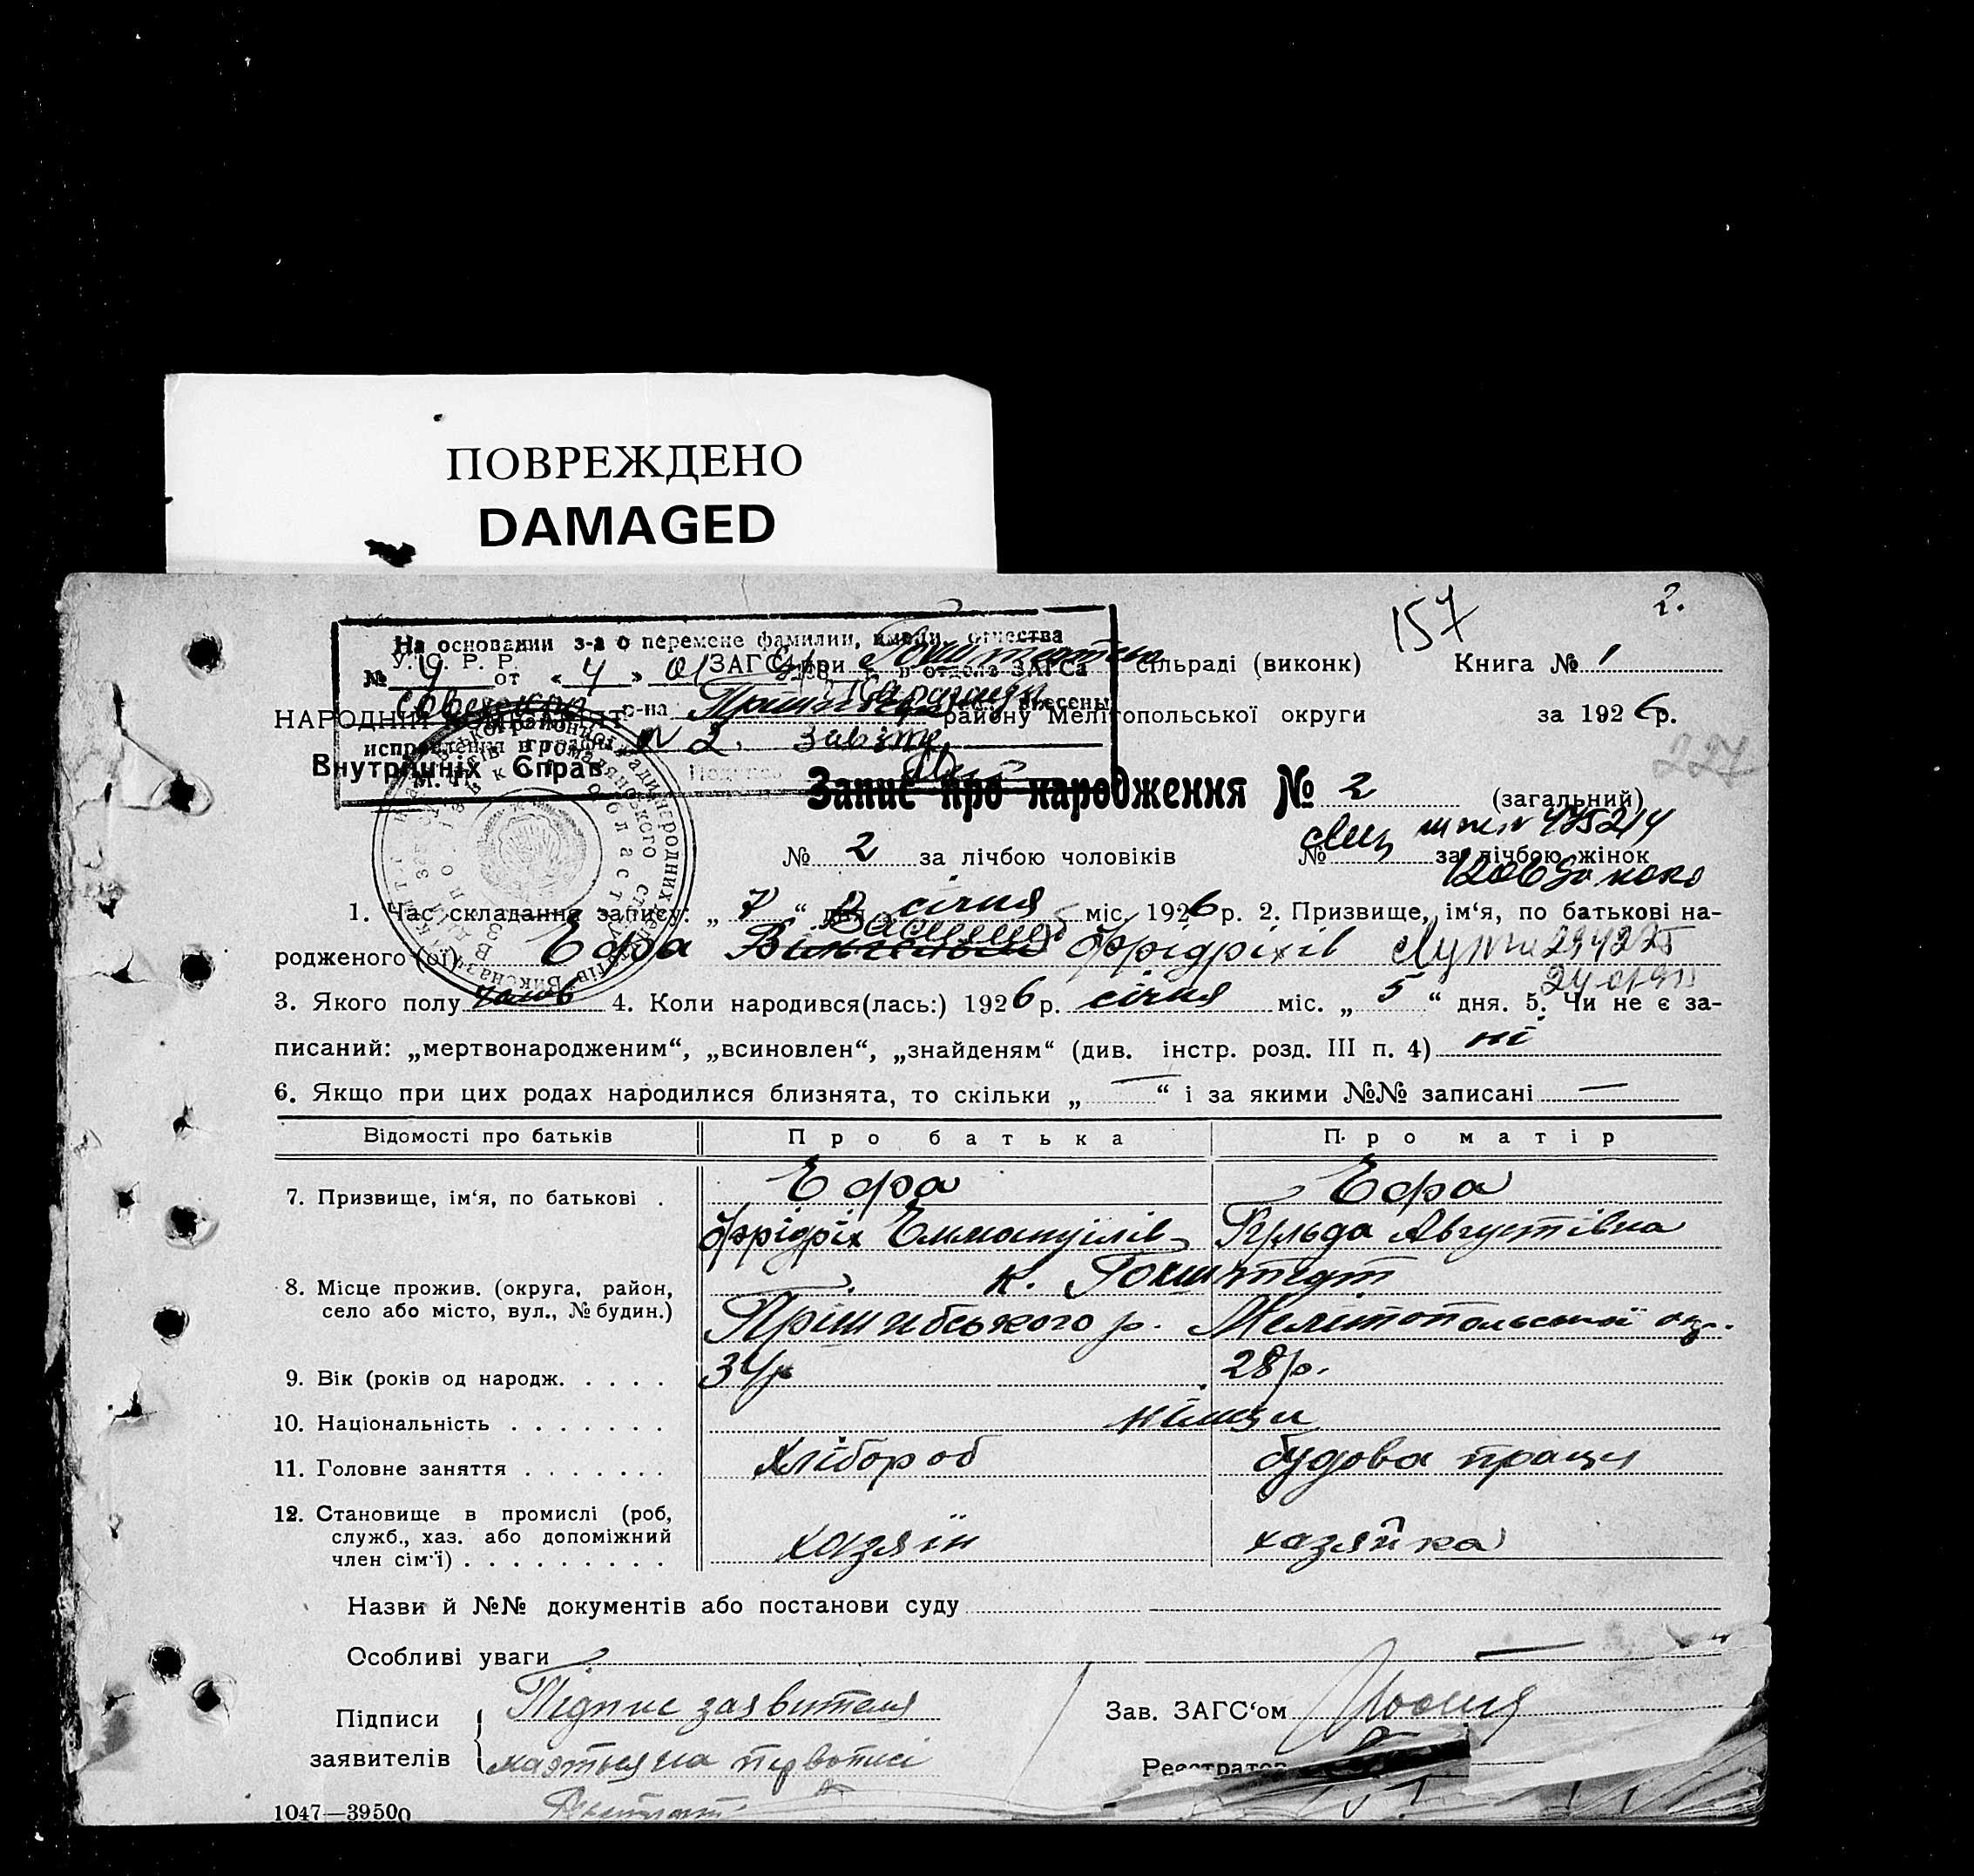 ПОВРЕЖДЕНО
DAMAGED
157
2.
На основании з-а о перемене фамилии, имени, отчества
У. С. Р. Р. ЗАГС при сільраді (виконк) Книга № 1
№ 4 от « 4 » 01 в отдела ЗАГСа
р-на Караганды внесены
НАРОДНИЙ району Мелітопольської округи за 1926 р.
исправления в графы № 2.
227
Внутрішніх Справ
М. П. Подпись
Запис про народження № 2 (загальний)
№ 2 за лічбою чоловіків № за лічбою жінок
1. Час складання запису: „ 7 “ дня січня міс. 1926 р. 2. Призвище, ім‘я, по батькові на-
родженого (ої) Ефа Фрідріхів
3. Якого полу чолов 4. Коли народився(лась:) 1926 р. січня міс. „ 5 “ дня. 5. Чи не є за-
писаний: „мертвонародженим“, „всиновлен“, „знайденям“ (див. інстр. розд. III п. 4) ні
6. Якщо при цих родах народилися близнята, то скільки „ — “ і за якими №№ записані —
Відомості про батьків Про батька Про матір
7. Призвище, ім‘я, по батькові . Ефа Ефа
Фрідріх Еммануілів Гульда Августівна
8. Місце прожив. (округа, район, к. Гохштедт
село або місто, вул., № будин.) Прішибського р. Мелітопольської окр.
9. Вік (років од народж. . . . . 34р 28р.
10. Національність . . . . . . . німци
11. Головне заняття . . . . . . . хлібороб будова праця
12. Становище в промислі (роб,
служб., хаз. або допоміжний хазяїн хазяйка
член сім‘ї) . . . . . . . . .
Назви й №№ документів або постанови суду
Особливі уваги —
Підписи Підпис заявителя Зав. ЗАГС‘ом
заявителів маэтьця на первописі Реєстратор
1047—39500